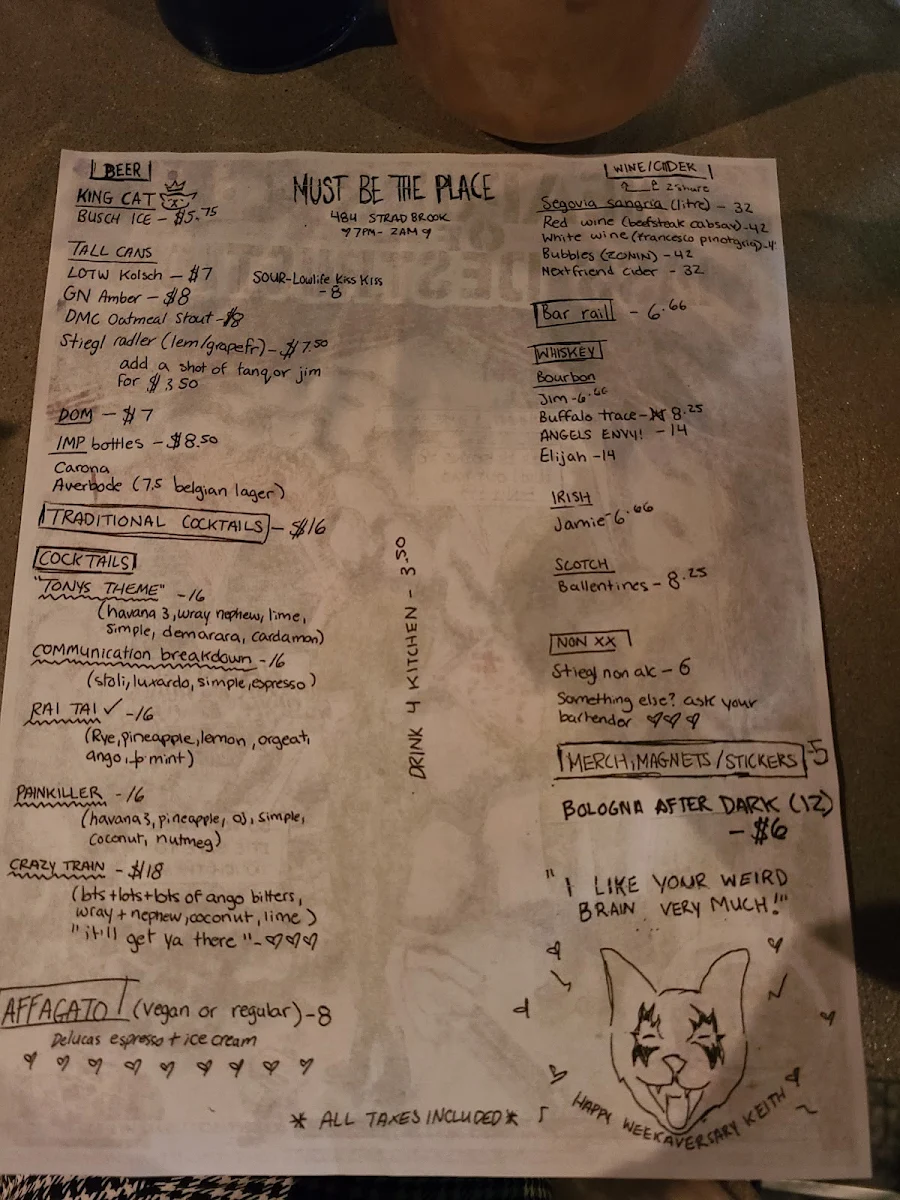 BEER
KING CAT
BUSCH ICE - $5.75
TALL CANS
LOTW Kolsch - $7
GN Amber - $8
DMC Oatmeal Stout - $8
Stiegl radler (lem/grapefr) - $7.50
add a shot of tanq or jim
for $3.50
DOM - $7
IMP bottles - $8.50
Carona
Averbode (7.5 belgian lager)
TRADITIONAL COCKTAILS - $16
COCKTAILS
"TONYS THEME" - 16
(havana 3, wray nephew, lime,
simple, demarara, cardamon)
COMMUNICATION breakdown - 16
(stoli, luxardo, simple, espresso)
RAI TAI ✓ - 16
(Rye, pineapple, lemon, orgeat,
ango, mint)
PAINKILLER - 16
(havana 3, pineapple, oj, simple,
coconut, nutmeg)
CRAZY TRAIN - $18
(lots + lots + lots of ango bitters,
wray + nephew, coconut, lime)
"it'll get ya there" - ♡♡♡
AFFAGATO! (vegan or regular) - 8
Delucas espresso + ice cream
♡ ♡ ♡ ♡ ♡ ♡ ♡ ♡ ♡
MUST BE THE PLACE
484 STRADBROOK
♡ 7PM - 2AM ♡
SOUR - Lowlife Kiss Kiss
- 8
DRINK 4 KITCHEN - 3.50
WINE/CIDER
2 share
Segovia sangria (litre) - 32
Red wine (beefsteak cabsav) - 42
White wine (francesco pinotgrig)
Bubbles (ZONIN) - 42
Nextfriend cider - 32
Bar rail - 6.66
WHISKEY
Bourbon
Jim - 6.66
Buffalo trace - 8.25
ANGELS ENVY! - 14
Elijah - 14
IRISH
Jamie - 6.66
SCOTCH
Ballentines - 8.25
NON XX
Stiegl non alc - 6
Something else? ask your
bartender ♡♡♡
MERCH, MAGNETS/STICKERS 5
BOLOGNA AFTER DARK (12)
- $6
"I LIKE YOUR WEIRD
BRAIN VERY MUCH!"
HAPPY WEEKAVERSARY KEITH
* ALL TAXES INCLUDED *